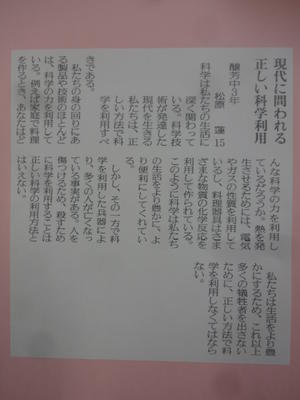 現代に問われる
正しい科学利用
醸芳中3年
松原 蓮 15
科学は私たちの生活に
深く関わって
いる。科学技
術が発達した
現代を生きる
私たちは、正
しい方法で科
学を利用すべ
きである。
私たちの身の回りにあ
る製品や技術のほとんど
は、科学の力を利用して
いる。例えば家庭で料理
を作るとき、あなたはど
んな科学の力を利用し
ているだろうか。熱を発
生させるためには、電気
やガスの性質を利用して
いるし、料理器具はさま
ざまな物質の化学反応を
利用して作られている。
このように科学は私たち
の生活をより豊かに、よ
り便利にしてくれてい
る。
しかし、その一方で科
学を利用した兵器によ
り、多くの人が亡くなっ
ている事実がある。人を
傷つけるため、殺すため
に科学を利用することは
正しい科学の利用方法と
はいえない。
私たちは生活をより豊
かにするため、これ以上
多くの犠牲者を出さない
ために、正しい方法で科
学を利用しなくてはなら
ない。